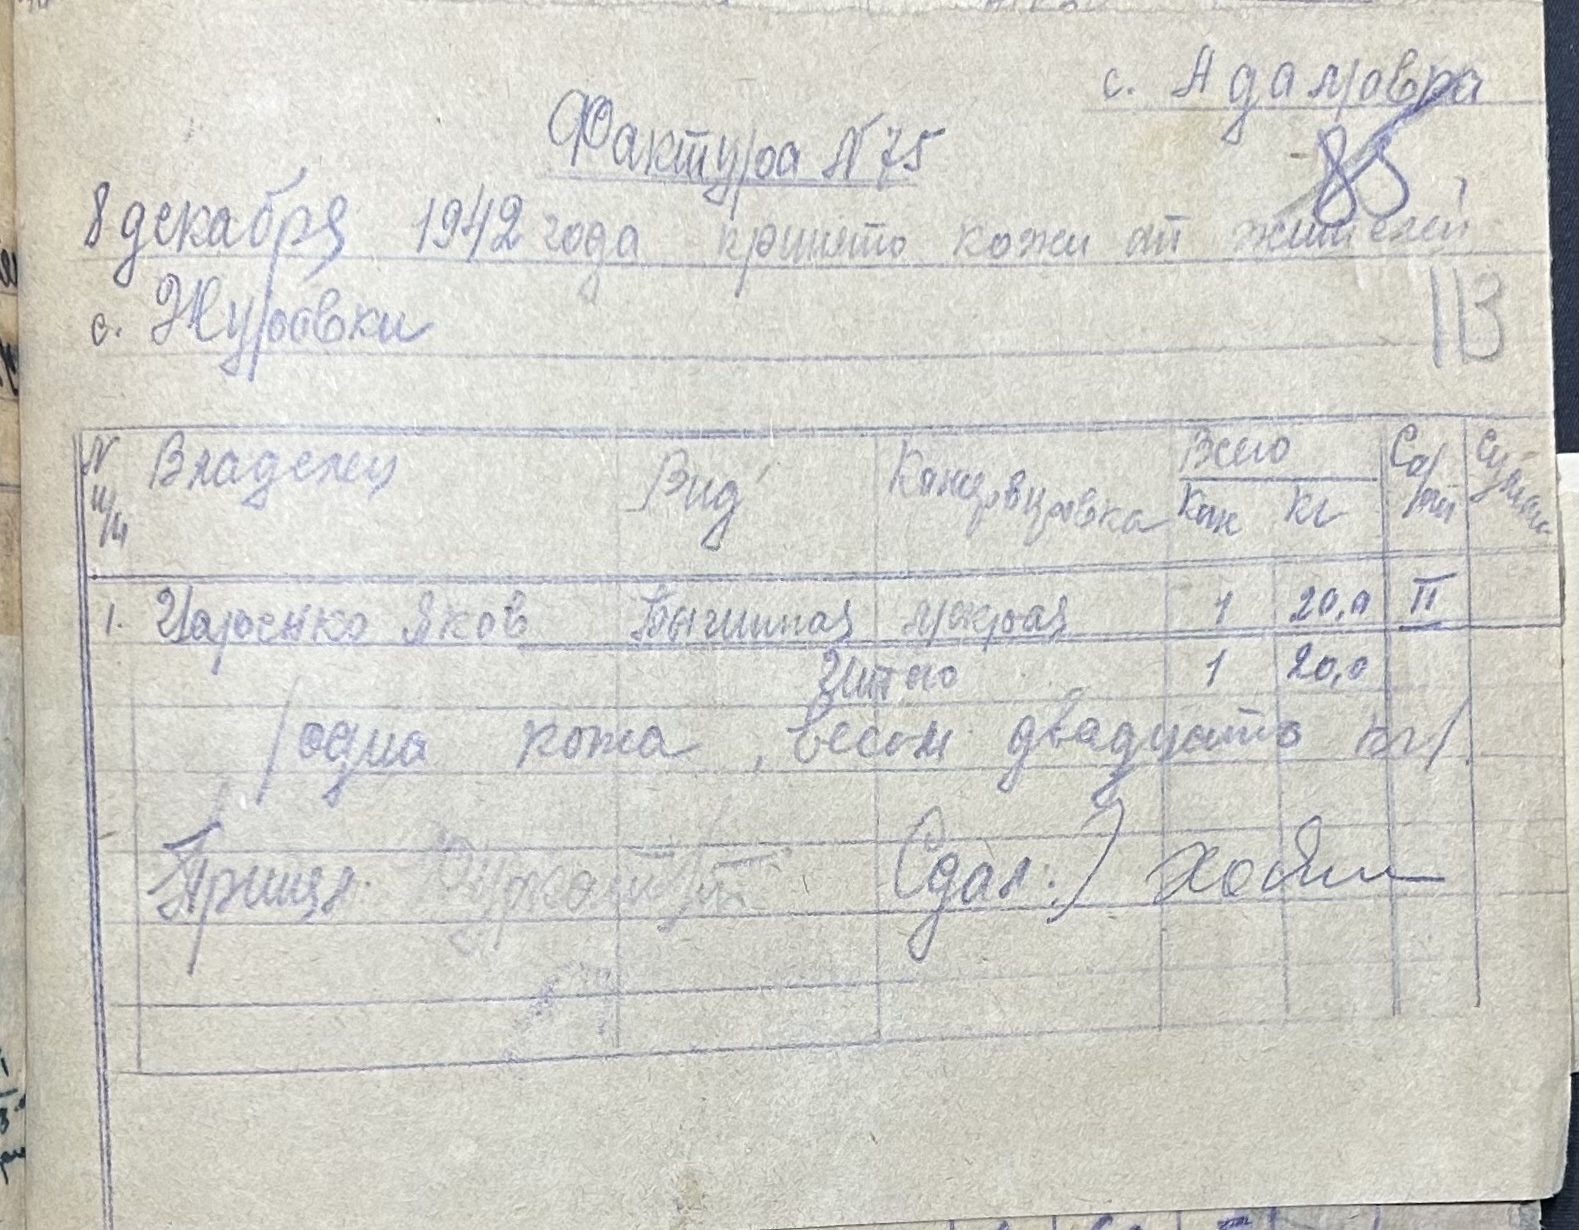 с. Адамовка
Фактура N 75
85
8 декабря 1942 года принято кожи от жителей
с. Журовки
113
N п/п Владелец Вид Консервировка Всего Кож Кг Сорт Сумма
1. Яков Бычинная мокрая 1 20,0 II
Итого 1 20,0
/одна кожа, весом двадцать кг/.
Принял Сдал: